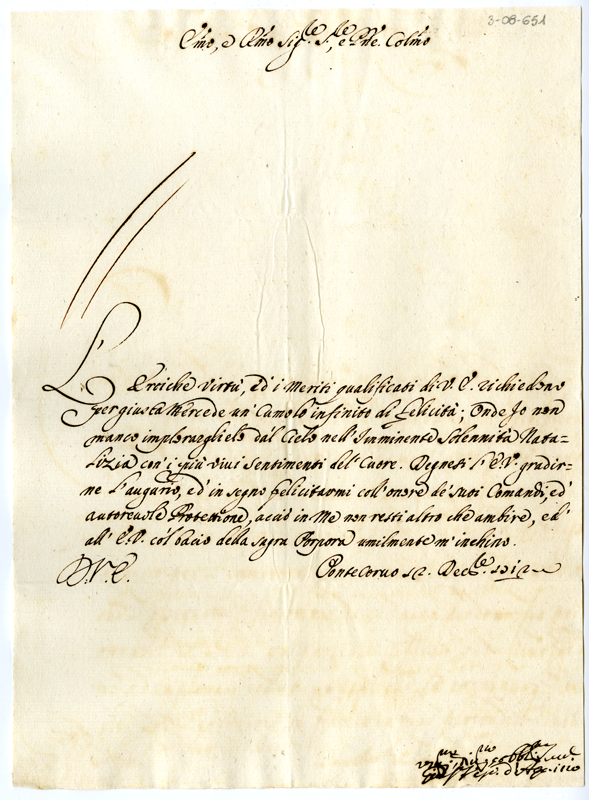 3-08-651
Emo, e Rmo Sig.re S.re, e Pne. Colmo
L'Eroiche Virtù, ed' i Meriti qualificati di V. E. richiedono
per giusta Mercede un' Cumolo infinito di Felicità; Onde Io non
manco implorargliele dal Cielo nell' Imminente Solennità Nata-
lizia con' i più vivi sentimenti del Cuore. Degnisi l'E.V. gradir-
ne l'augurio, ed' in segno felicitarmi coll' onore de' suoi Comandi, ed'
autorevole Protettione, acciò in Me non resti altro che ambire, ed'
all' E.V. col' bacio della sagra Porpora umilmente m' inchino.
D. V. E.
Ponte Corvo 12. Decbre.